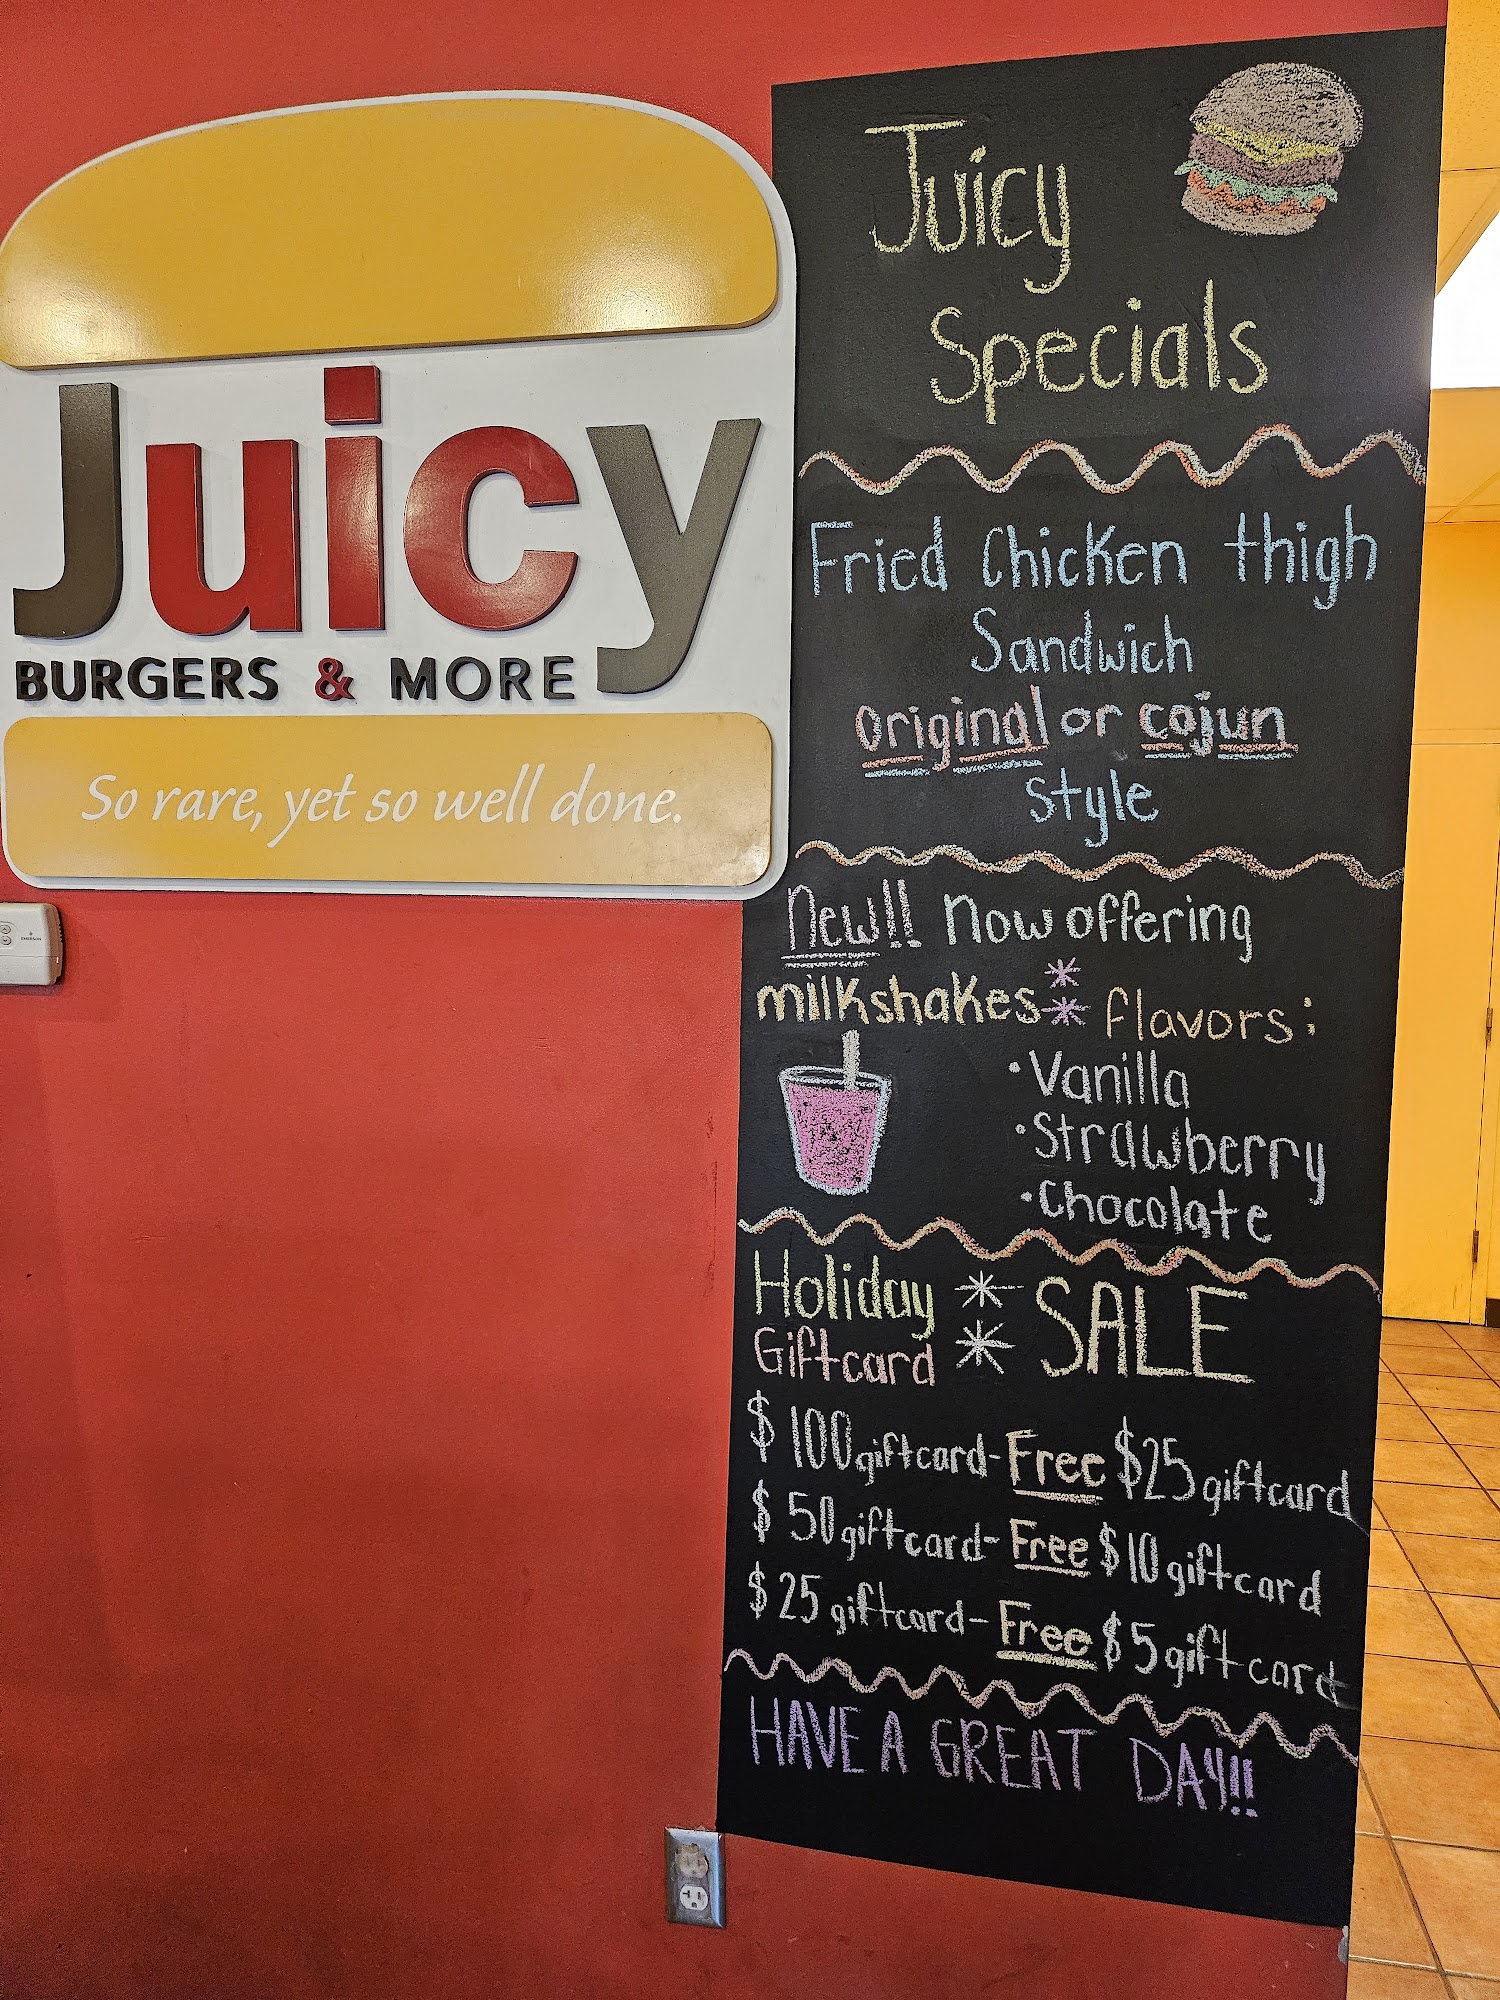 Juicy
BURGERS & MORE
So rare, yet so well done.
EMERSON
Juicy
Specials
Fried Chicken thigh
Sandwich
original or cajun
Style
New!! Now offering
milkshakes flavors:
• Vanilla
• Strawberry
• Chocolate
Holiday ** SALE
Giftcard
$100 giftcard - Free $25 giftcard
$50 giftcard - Free $10 giftcard
$25 giftcard - Free $5 gift card
HAVE A GREAT DAY!!